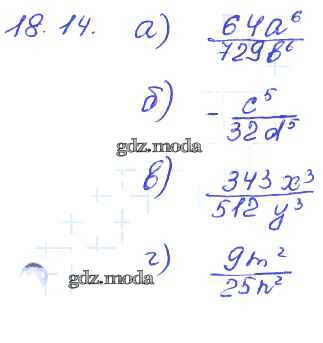 18.14. а) 64a⁶/729b⁶
б) - c⁵/32d⁵
gdz.moda
в) 343x³/512y³
г) 9m²/25n²
gdz.moda